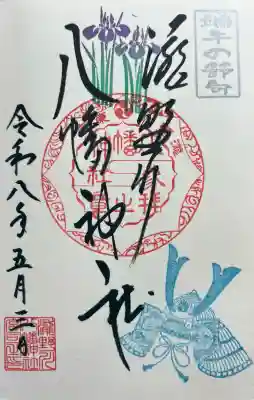 端午の節句
瀧野川
八幡神社
令和八年五月三日